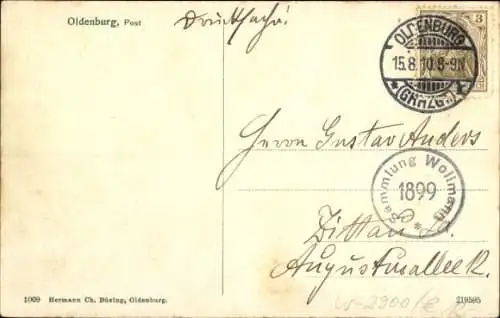 Oldenburg, Post
Drucksache!
3
OLDENBURG
15.8.10.8-9N.
*(GRHZGT.)*
Herrn Gustav Anders
Sammlung Wollmann
1899
*
Zittau
Augustusallee
1009 Hermann Ch. Büsing, Oldenburg.
219595